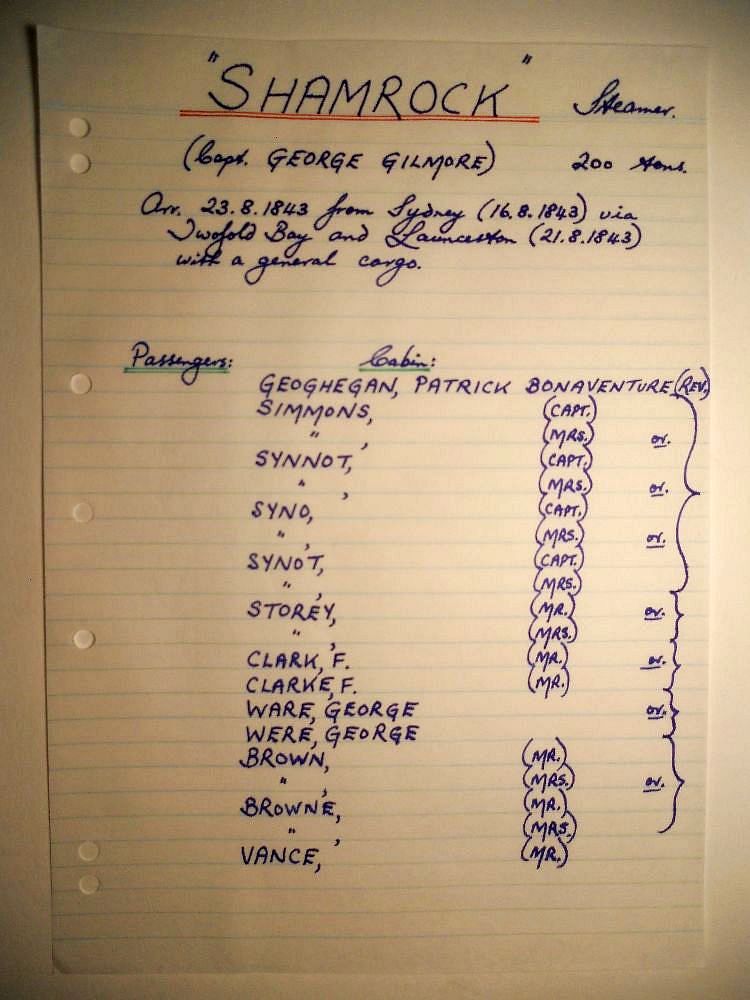 "SHAMROCK" Steamer.
(Capt. GEORGE GILMORE) 200 tons.
Arr. 23.8.1843 from Sydney (16.8.1843) via
Twofold Bay and Launceston (21.8.1843)
with a general cargo.
Passengers: Cabin:
GEOGHEGAN, PATRICK BONAVENTURE (REV.)
SIMMONS, (CAPT.)
" , (MRS.) or.
SYNNOT, (CAPT.)
" , (MRS.) or.
SYNO, (CAPT.)
" , (MRS.) or.
SYNOT, (CAPT.)
" , (MRS.)
STOREY, (MR.) or.
" , (MRS.)
CLARK, F. (MR.) or.
CLARKE, F. (MR.)
WARE, GEORGE or.
WERE, GEORGE
BROWN, (MR.)
" , (MRS.) or.
BROWNE, (MR.)
" , (MRS.)
VANCE, (MR.)